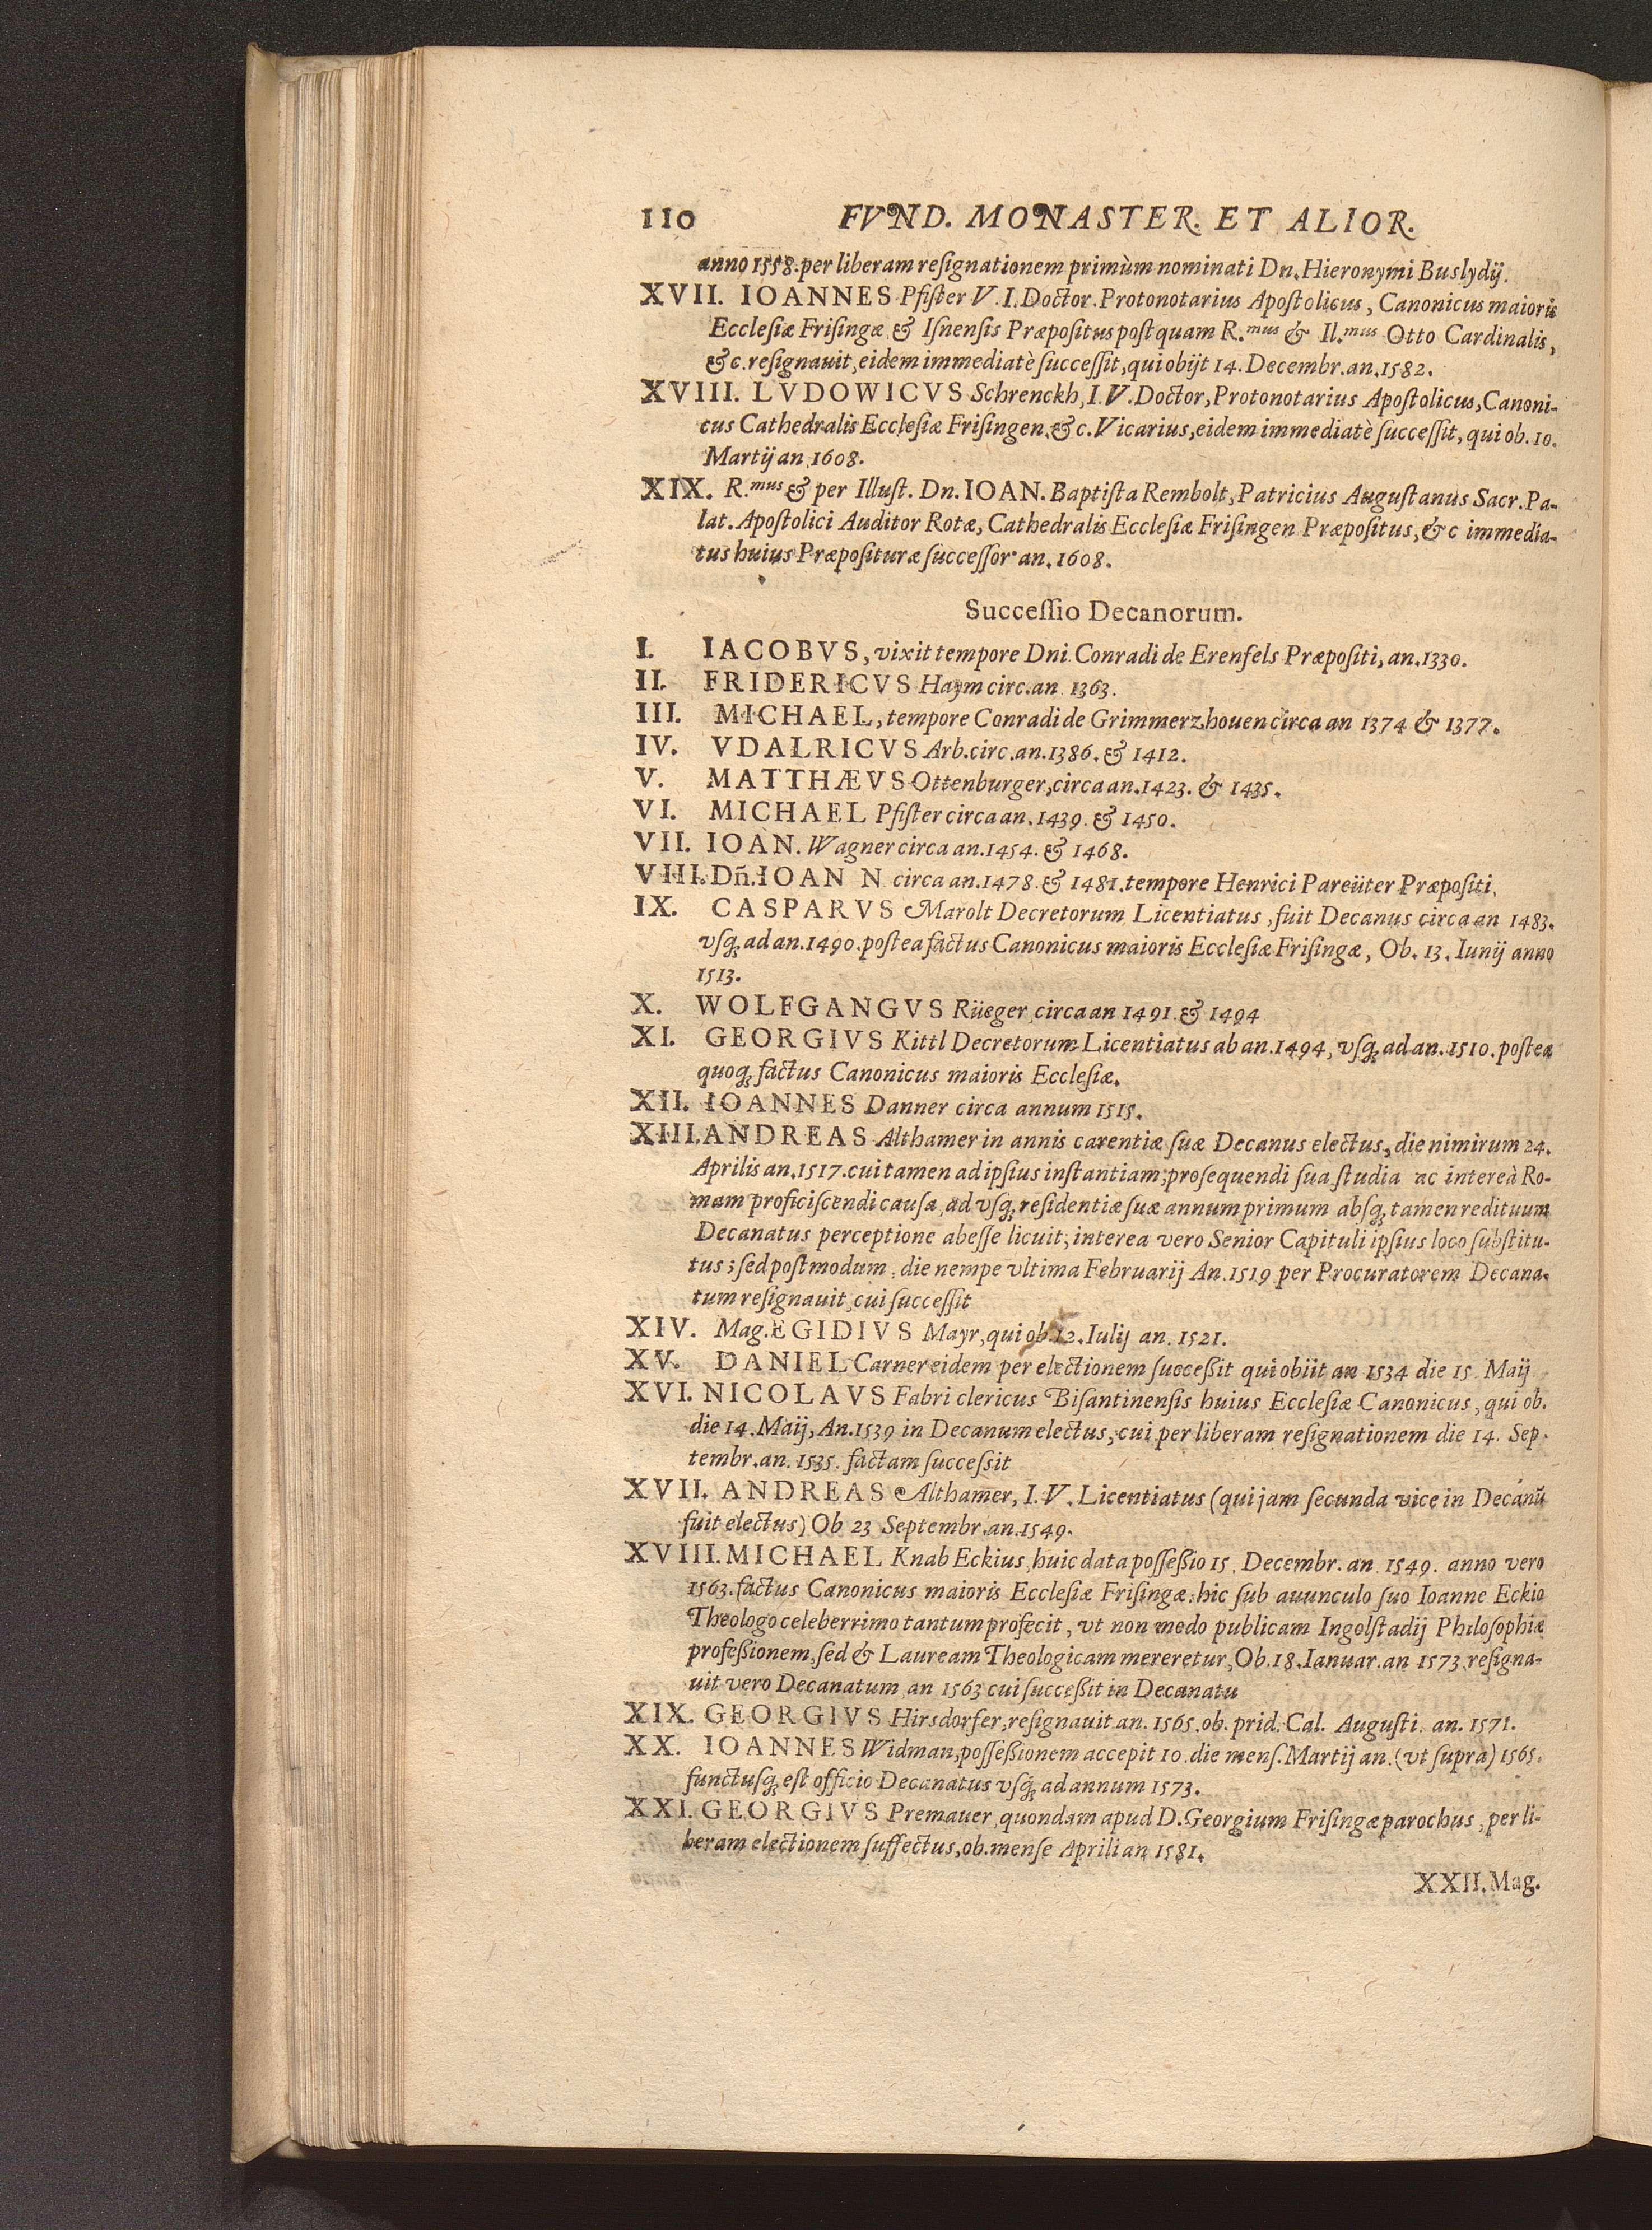 110 FVND. MONASTER. ET ALIOR.
anno 1558. per liberam resignationem primùm nominati Dn. Hieronymi Buslydij.
XVII. IOANNES Pfister V. I. Doctor. Protonotarius Apostolicus, Canonicus maioris
Ecclesiæ Frisingæ & Isnensis Præpositus postquam R.mus & Il.mus Otto Cardinalis,
&c. resignauit, eidem immediatè successit, qui obijt 14. Decembr. an. 1582.
XVIII. LVDOWICVS Schrenckh, I. V. Doctor, Protonotarius Apostolicus, Canoni-
cus Cathedralis Ecclesiæ Frisingen. &c. Vicarius, eidem immediatè successit, qui ob. 10.
Martij an 1608.
XIX. R.mus & per Illust. Dn. IOAN. Baptista Rembolt, Patricius Augustanus Sacr. Pa-
lat. Apostolici Auditor Rotæ, Cathedralis Ecclesiæ Frisingen Præpositus, &c immedia-
tus huius Præposituræ successor an. 1608.
Successio Decanorum.
I. IACOBVS, vixit tempore Dni Conradi de Erenfels Præpositi, an. 1330.
II. FRIDERICVS Haym circ. an 1363.
III. MICHAEL, tempore Conradi de Grimmerzhouen circa an 1374 & 1377.
IV. VDALRICVS Arb. circ. an. 1386. & 1412.
V. MATTHÆVS Ottenburger, circa an. 1423. & 1435.
VI. MICHAEL Pfister circa an. 1439. & 1450.
VII. IOAN. Wagner circa an. 1454. & 1468.
VIII. Dñ. IOAN N circa an. 1478 & 1481. tempore Henrici Pareüter Præpositi.
IX. CASPARVS Marolt Decretorum Licentiatus, fuit Decanus circa an 1483.
vsq; ad an. 1490. postea factus Canonicus maioris Ecclesiæ Frisingæ, Ob. 13. Iunij anno
1513.
X. WOLFGANGVS Rüeger circa an 1491 & 1494
XI. GEORGIVS Kittl Decretorum Licentiatus ab an. 1494, vsq; ad an. 1510. postea
quoq; factus Canonicus maioris Ecclesiæ.
XII. IOANNES Danner circa annum 1515.
XIII. ANDREAS Althamer in annis carentiæ suæ Decanus electus, die nimirum 24.
Aprilis an. 1517. cui tamen ad ipsius instantiam, prosequendi sua studia ac intereà Ro-
mam proficiscendi causa, ad vsq; residentiæ suæ annum primum absq; tamen redituum
Decanatus perceptione abesse licuit; interea vero Senior Capituli ipsius loco substitu-
tus; sed postmodum, die nempe vltima Februarij An. 1519 per Procuratorem Decana-
tum resignauit, cui successit
XIV. Mag. EGIDIVS Mayr, qui ob. 12. Iulij an. 1521.
XV. DANIEL Carner eidem per electionem succeßit qui obiit an 1534 die 15 Maij
XVI. NICOLAVS Fabri clericus Bisantinensis huius Ecclesiæ Canonicus, qui ob.
die 14. Maij, An. 1539 in Decanum electus, cui per liberam resignationem die 14. Sep-
tembr. an. 1535. factam successit
XVII. ANDREAS Althamer, I. V. Licentiatus (qui jam secunda vice in Decanũ
fuit electus) Ob 23 Septembr. an. 1549.
XVIII. MICHAEL Knab Eckius, huic data possеßio 15. Decembr. an 1549. anno vero
1563. factus Canonicus maioris Ecclesiæ Frisingæ: hic sub auunculo suo Ioanne Eckio
Theologo celeberrimo tantum profecit, vt non modo publicam Ingolstadij Philosophiæ
profeßionem, sed & Lauream Theologicam mereretur, Ob. 18. Ianuar. an 1573 resigna-
uit vero Decanatum an 1563 cui succeßit in Decanatu
XIX. GEORGIVS Hirsdorfer, resignauit an. 1565. ob. prid. Cal. Augusti. an. 1571.
XX. IOANNES Widman, posseßionem accepit 10. die mens. Martij an. (vt supra) 1565.
functusq; est officio Decanatus vsq; ad annum 1573.
XXI. GEORGIVS Premauer, quondam apud D. Georgium Frisingæ parochus, per li-
beram electionem suffectus, ob. mense Aprili an 1581.
XXII. Mag.